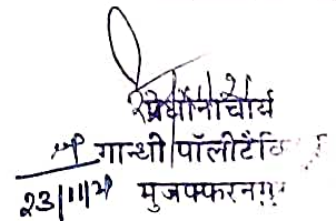 प्रधानाचार्य
गान्धी पॉलीटैक्नि
23/11/21 मुजफ्फरनगर